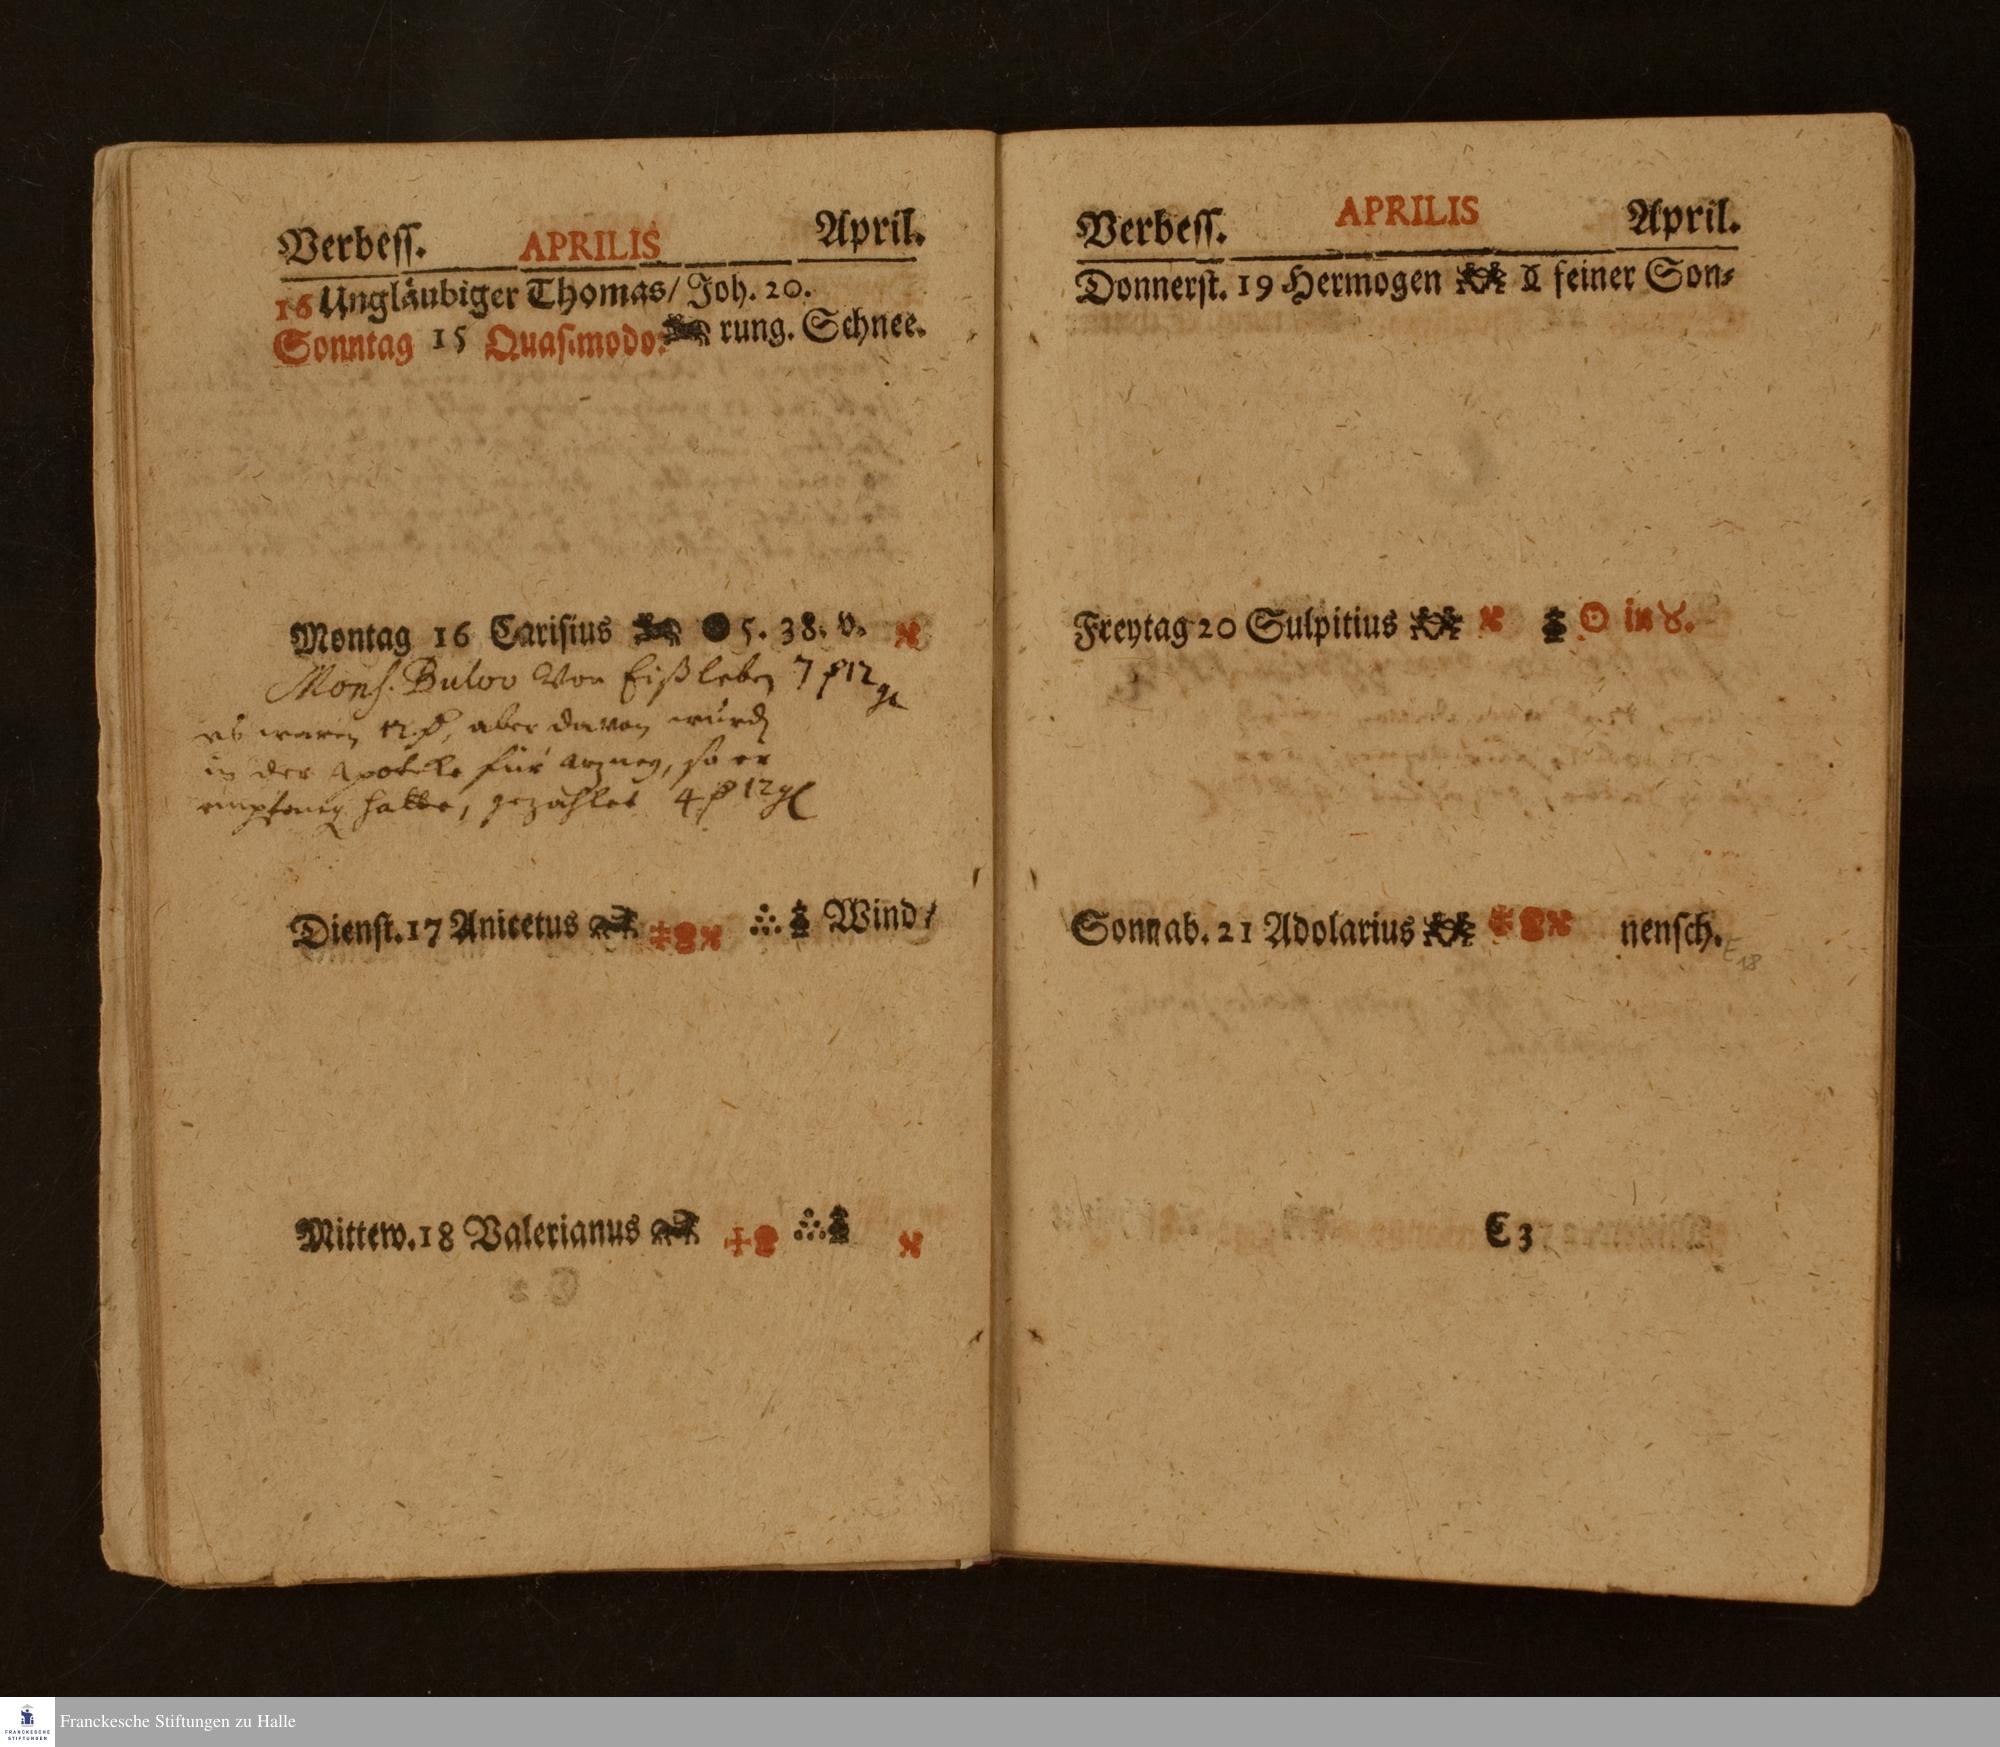 Verbess. APRILIS April.
16 Ungläubiger Thomas/ Joh. 20.
Sonntag 15 Quasimodo. rung. Schnee.
Montag 16 Carisius ● 5. 38. v.
Mons. Bulow Von Eißleben 7 ₰ 12 gl
es waren 12 ₰, aber davon wurdẽ
in der Apoteke für Artzney, so er
empfang hatte, gezahlet 4 ₰ 12 gl
Dienst. 17 Anicetus Wind/
Mittew. 18 Valerianus
Verbess. APRILIS April.
Donnerst. 19 Hermogen feiner Son⸗
Freytag 20 Sulpitius ☉ in ♉.
Sonnab. 21 Adolarius nensch.
E 18
C 3
Franckesche Stiftungen zu Halle
FRANCKESCHE
STIFTUNGEN